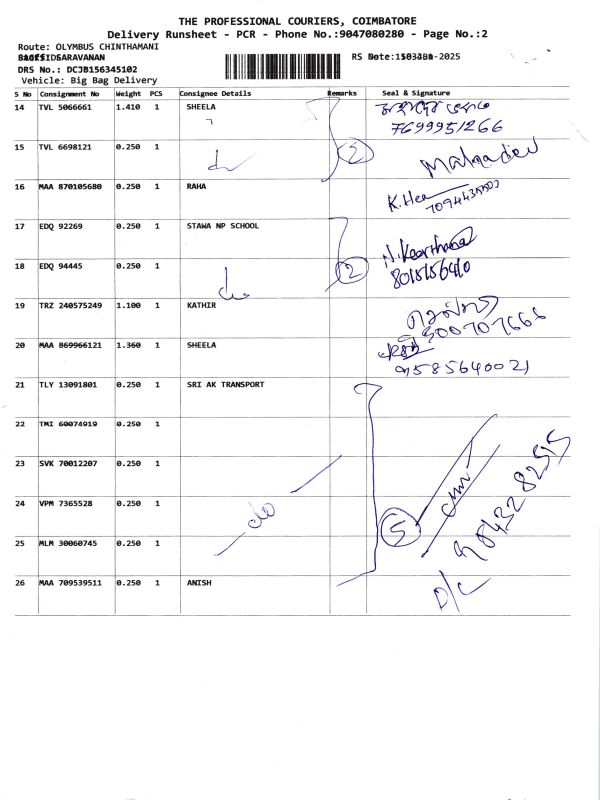 THE PROFESSIONAL COURIERS, COIMBATORE
Delivery Runsheet - PCR - Phone No.:9047080280 - Page No.:2
Route: OLYMBUS CHINTHAMANI
SARAVANAN
RS -2025
DRS No.: DCJB156345102
Vehicle: Big Bag Delivery
S No Consignment No Weight PCS Consignee Details Remarks Seal & Signature
14 TVL 5066661 1.410 1 SHEELA
7699951266
15 TVL 6698121 0.250 1 do 2
16 MAA 870105680 0.250 1 RAHA K.Hea
17 EDQ 92269 1 STAWA NP SCHOOL N.Keerthana
18 EDQ 94445 0.250 1 do 2
19 TRZ 240575249 1.100 1 KATHIR
20 MAA 869966121 1.360 1 SHEELA
9585640021
21 TLY 13091801 0.250 1 SRI AK TRANSPORT
22 TMI 60074919 0.250 1
23 SVK 70012207 0.250 1
24 VPM 7365528 0.250 1 do 5
25 MLM 30060745 0.250 1
26 MAA 709539511 0.250 1 ANISH D/C